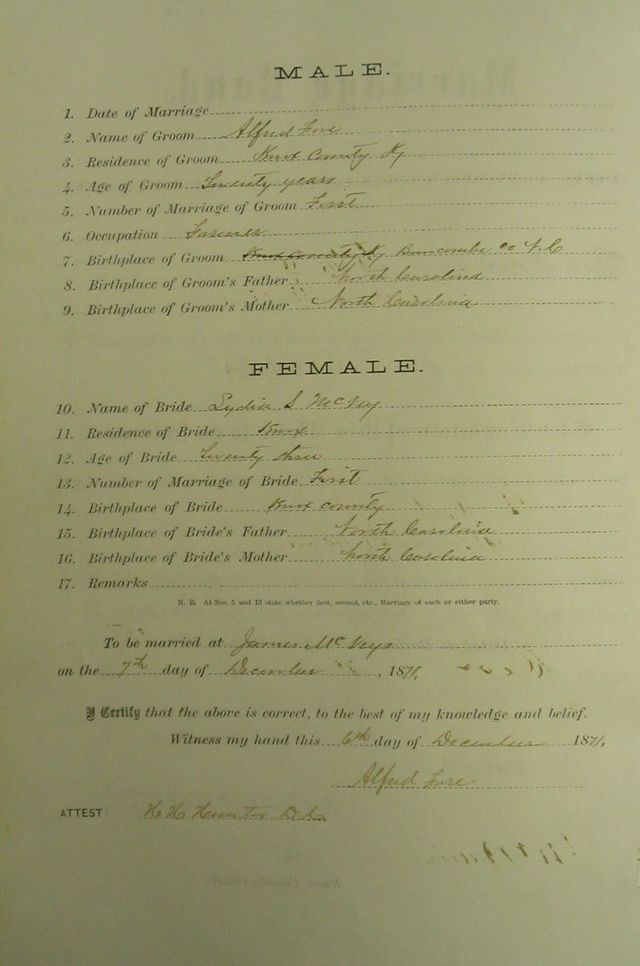 MALE.
1. Date of Marriage
2. Name of Groom Alfred Fore
3. Residence of Groom Knox County Ky
4. Age of Groom Twenty years
5. Number of Marriage of Groom First
6. Occupation Farmer
7. Birthplace of Groom Knox County Ky Buncombe co N.C
8. Birthplace of Groom's Father North Carolina
9. Birthplace of Groom's Mother North Carolina
FEMALE.
10. Name of Bride Lydia S McVey
11. Residence of Bride Knox
12. Age of Bride Twenty three
13. Number of Marriage of Bride First
14. Birthplace of Bride Knox county
15. Birthplace of Bride's Father North Carolina
16. Birthplace of Bride's Mother North Carolina
17. Remarks
N. B. At Nos. 5 and 13 state whether first, second, etc., Marriage of each or either party.
To be married at James McVeys
on the 7th day of December, 1871,
I Certify that the above is correct, to the best of my knowledge and belief.
Witness my hand this 6th day of December 1871,
Alfred Fore
ATTEST: H H Hunter